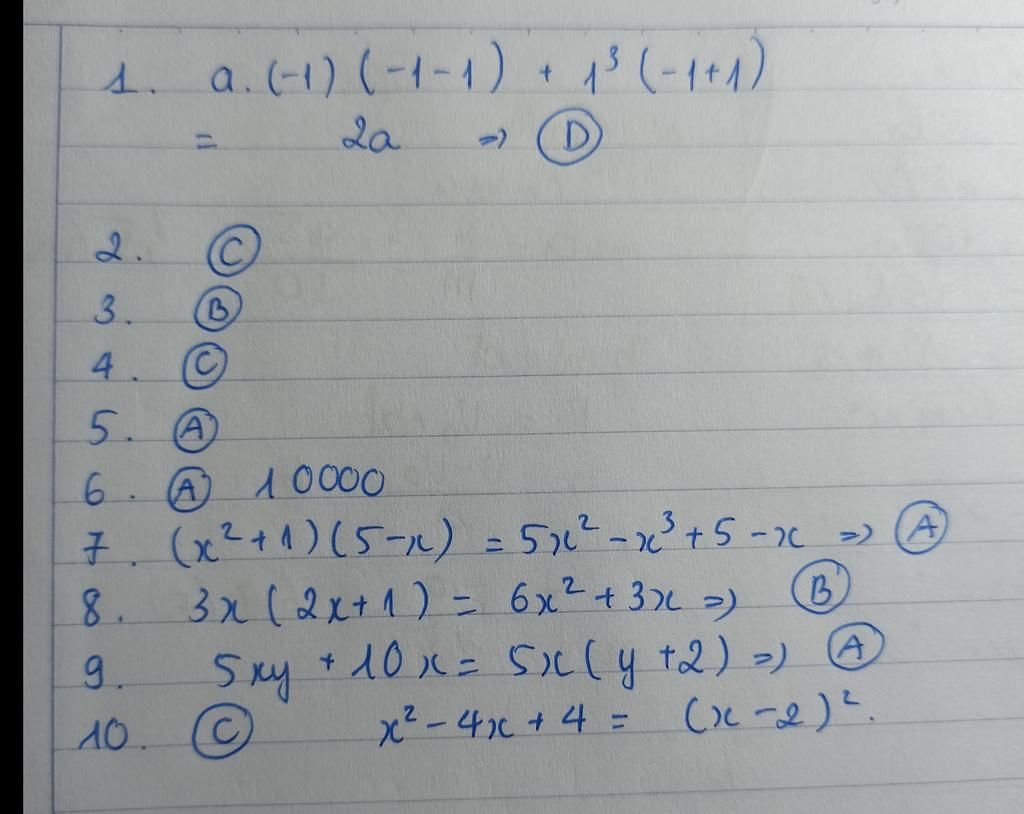 1. a.(-1)(-1-1) + 1³(-1+1)
= 2a => D
2. C
3. B
4. C
5. A
6. A 10000
7. (x²+1)(5-x) = 5x²-x³+5-x => A
8. 3x(2x+1) = 6x²+3x => B
9. 5xy + 10x = 5x(y+2) => A
10. C x²-4x+4 = (x-2)².